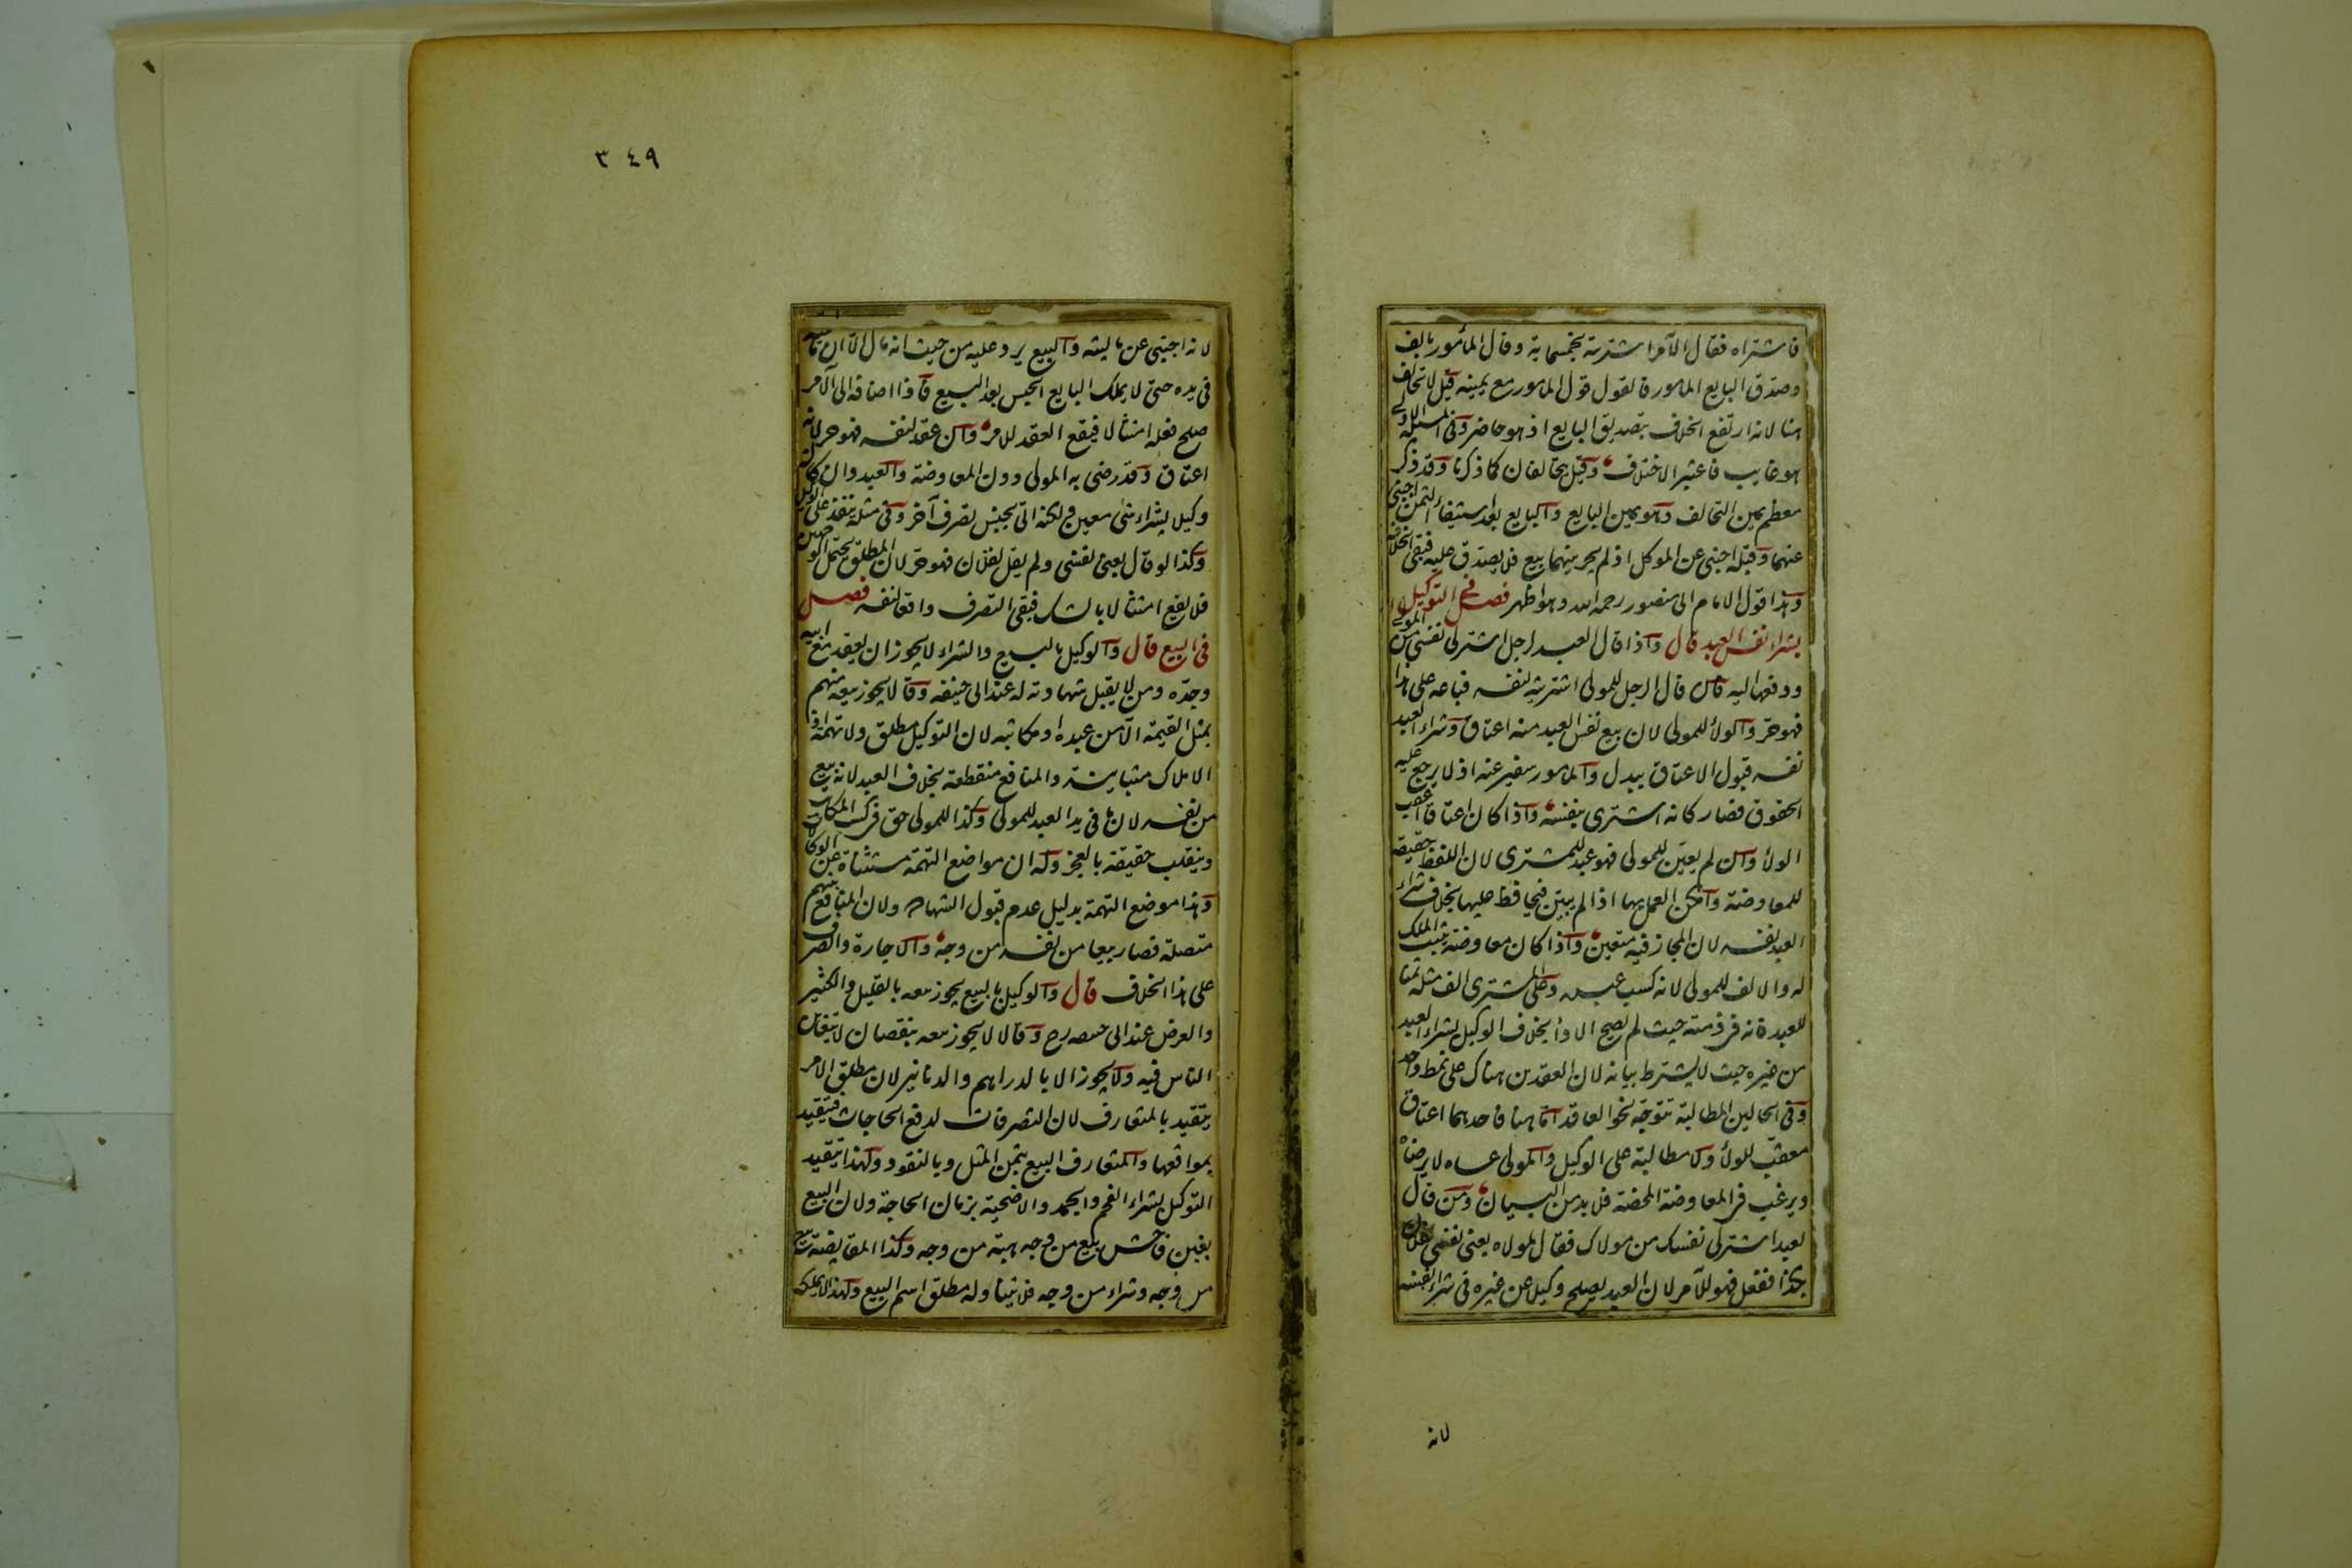 فاشتراه فقال الآمر اشتريته بخمسماية وقال المأمور بالف
وصدق البايع المامور فالقول قول المامور مع يمينه قيل لا تحالف
هنا لانه ارتفع الخلاف بتصديق البايع اذ هو حاضر وفي المسئلة الاولى
هو غايب فاعتبر الاختلاف وقيل يتحالفان كما ذكرنا وقد ذكر
معظم يمين التحالف وهو يمين البايع والبايع بعد استيفاء الثمن اجنبي
عنهما وقبله اجنبي عن الموكل اذ لم يجر بينهما بيع فلا يصدق عليه فبقي الخلاف
وهذا قول الامام ابي منصور رحمه الله وهو اظهر فصل في التوكيل
بشراء نفس العبد قال واذا قال العبد لرجل اشتر لي نفسي من المولى
ودفعها اليه فان قال الرجل للمولى اشتريته لنفسه فباعه على هذا
فهو حر والولأ للمولى لان بيع نفس العبد منه اعتاق وشراء العبد
نفسه قبول الاعتاق ببدل والمامور سفير عنه اذ لا يرجع عليه
الحقوق فصار كانه اشترى بنفسه واذا كان اعتاقا اعقب
الولأ وان لم يعين للمولى فهو عبد للمشتري لان اللفظ حقيقة
للمعاوضة وامكن العمل بها اذا لم يبين فيحافظ عليها بخلاف شراء
العبد نفسه لان المجاز فيه متعين واذا كان معاوضة يثبت الملك
له والالف للمولى لانه كسب عبده وعلى المشتري الف مثله ثمنا
للعبد فانه في ذمته حيث لم يصح الادأ بخلاف الوكيل بشراء العبد
من غيره حيث لا يشترط بيانه لان العقدين هناك على نمط واحد
وفي الحالين المطالبة تتوجه نحو العاقد اما هنا فاحدهما اعتاق
معقب للولأ ولا مطالبة على الوكيل والمولى عساه لا يرضاه
ويرغب في المعاوضة المحضة فلا بد من البيان ومن قال
لعبد اشتر لي نفسك من مولاك فقال لمولاه بعني نفسي لفلان
بكذا ففعل فهو للآمر لان العبد يصلح وكيلا عن غيره في شراء نفسه
لانه
٣٤٩
لانه اجنبي عن ماليته والبيع يرد عليه من حيث انه مال الا ان ماليته
في يده حتى لا يملك البايع الحبس بعد البيع فاذا اضافه الى الآمر
صلح فعله امتثالا فيقع العقد للامر وان عقد لنفسه فهو حر لانه
اعتاق وقد رضى به المولى دون المعاوضة والعبد وان كان
وكيلا بشراء شئ معين ولكنه اتى بجنس تصرف آخر وفي مثله ينفذ على الوكيل
وكذا لو قال بعني نفسي ولم يقل لفلان فهو حر لان المطلق يحتمل الوجهين
فلا يقع امتثالا بالشك فيبقى التصرف واقعا لنفسه فصل
في البيع قال والوكيل بالبيع والشراء لا يجوز ان يعقد مع ابيه
وجده ومن لا يقبل شهادته له عند ابي حنيفه وقالا يجوز بيعه منهم
بمثل القيمة الا من عبده او مكاتبه لان التوكيل مطلق ولا تهمة اذ
الاملاك متباينة والمنافع منقطعة بخلاف العبد لانه بيع
من نفسه لان ما في يد العبد للمولى وكذا للمولى حق في كسب المكاتب
وينقلب حقيقة بالعجز وله ان مواضع التهمة مستثناة عن الوكالات
وهذا موضع التهمة بدليل عدم قبول الشهادة ولان المنافع بينهم
متصلة فصار بيعا من نفسه من وجه والاجارة والصرف
على هذا الخلاف قال والوكيل بالبيع يجوز بيعه بالقليل والكثير
والعرض عند ابي حنيفه رح وقالا لا يجوز بيعه بنقصان لا يتغابن
الناس فيه ولا يجوز الا بالدراهم والدنانير لان مطلق الامر
يتقيد بالمتعارف لان التصرفات لدفع الحاجات فيتقيد
بمواقعها والمتعارف البيع بثمن المثل وبالنقود ولهذا يتقيد
التوكيل بشراء الفحم والجمد والاضحية بزمان الحاجة ولان البيع
بغبن فاحش بيع من وجه هبة من وجه وكذا المقايضة بيع
من وجه وشراء من وجه فلا يتناوله مطلق اسم البيع ولهذا لا يملكه